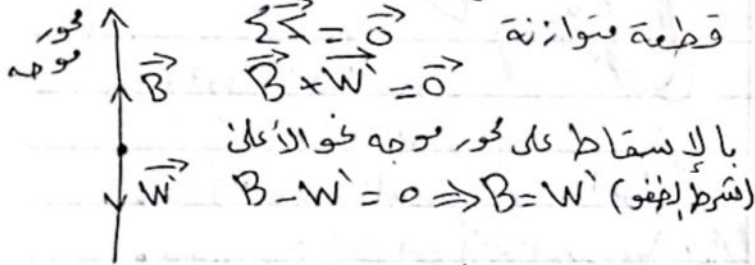 محور موجه
قطعة متوازنة $\Sigma \vec{F} = \vec{0}$
$\vec{B} + \vec{W'} = \vec{0}$
$\vec{B}$
بالإسقاط على محور موجه نحو الأعلى
$\vec{W'}$
$B - W' = 0 \Rightarrow B = W'$ (شرط الطفو)